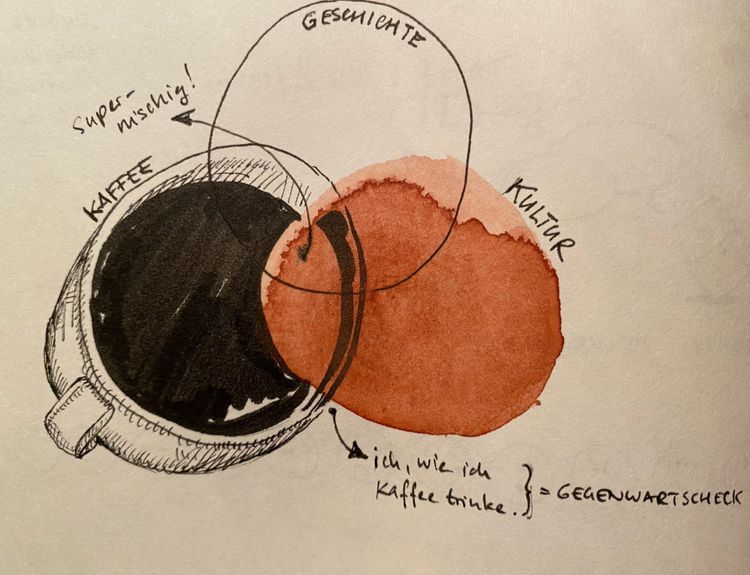 GESCHICHTE
super-
nischig!
KAFFEE
KULTUR
ich, wie ich
Kaffee trinke. } = GEGENWARTSCHECK